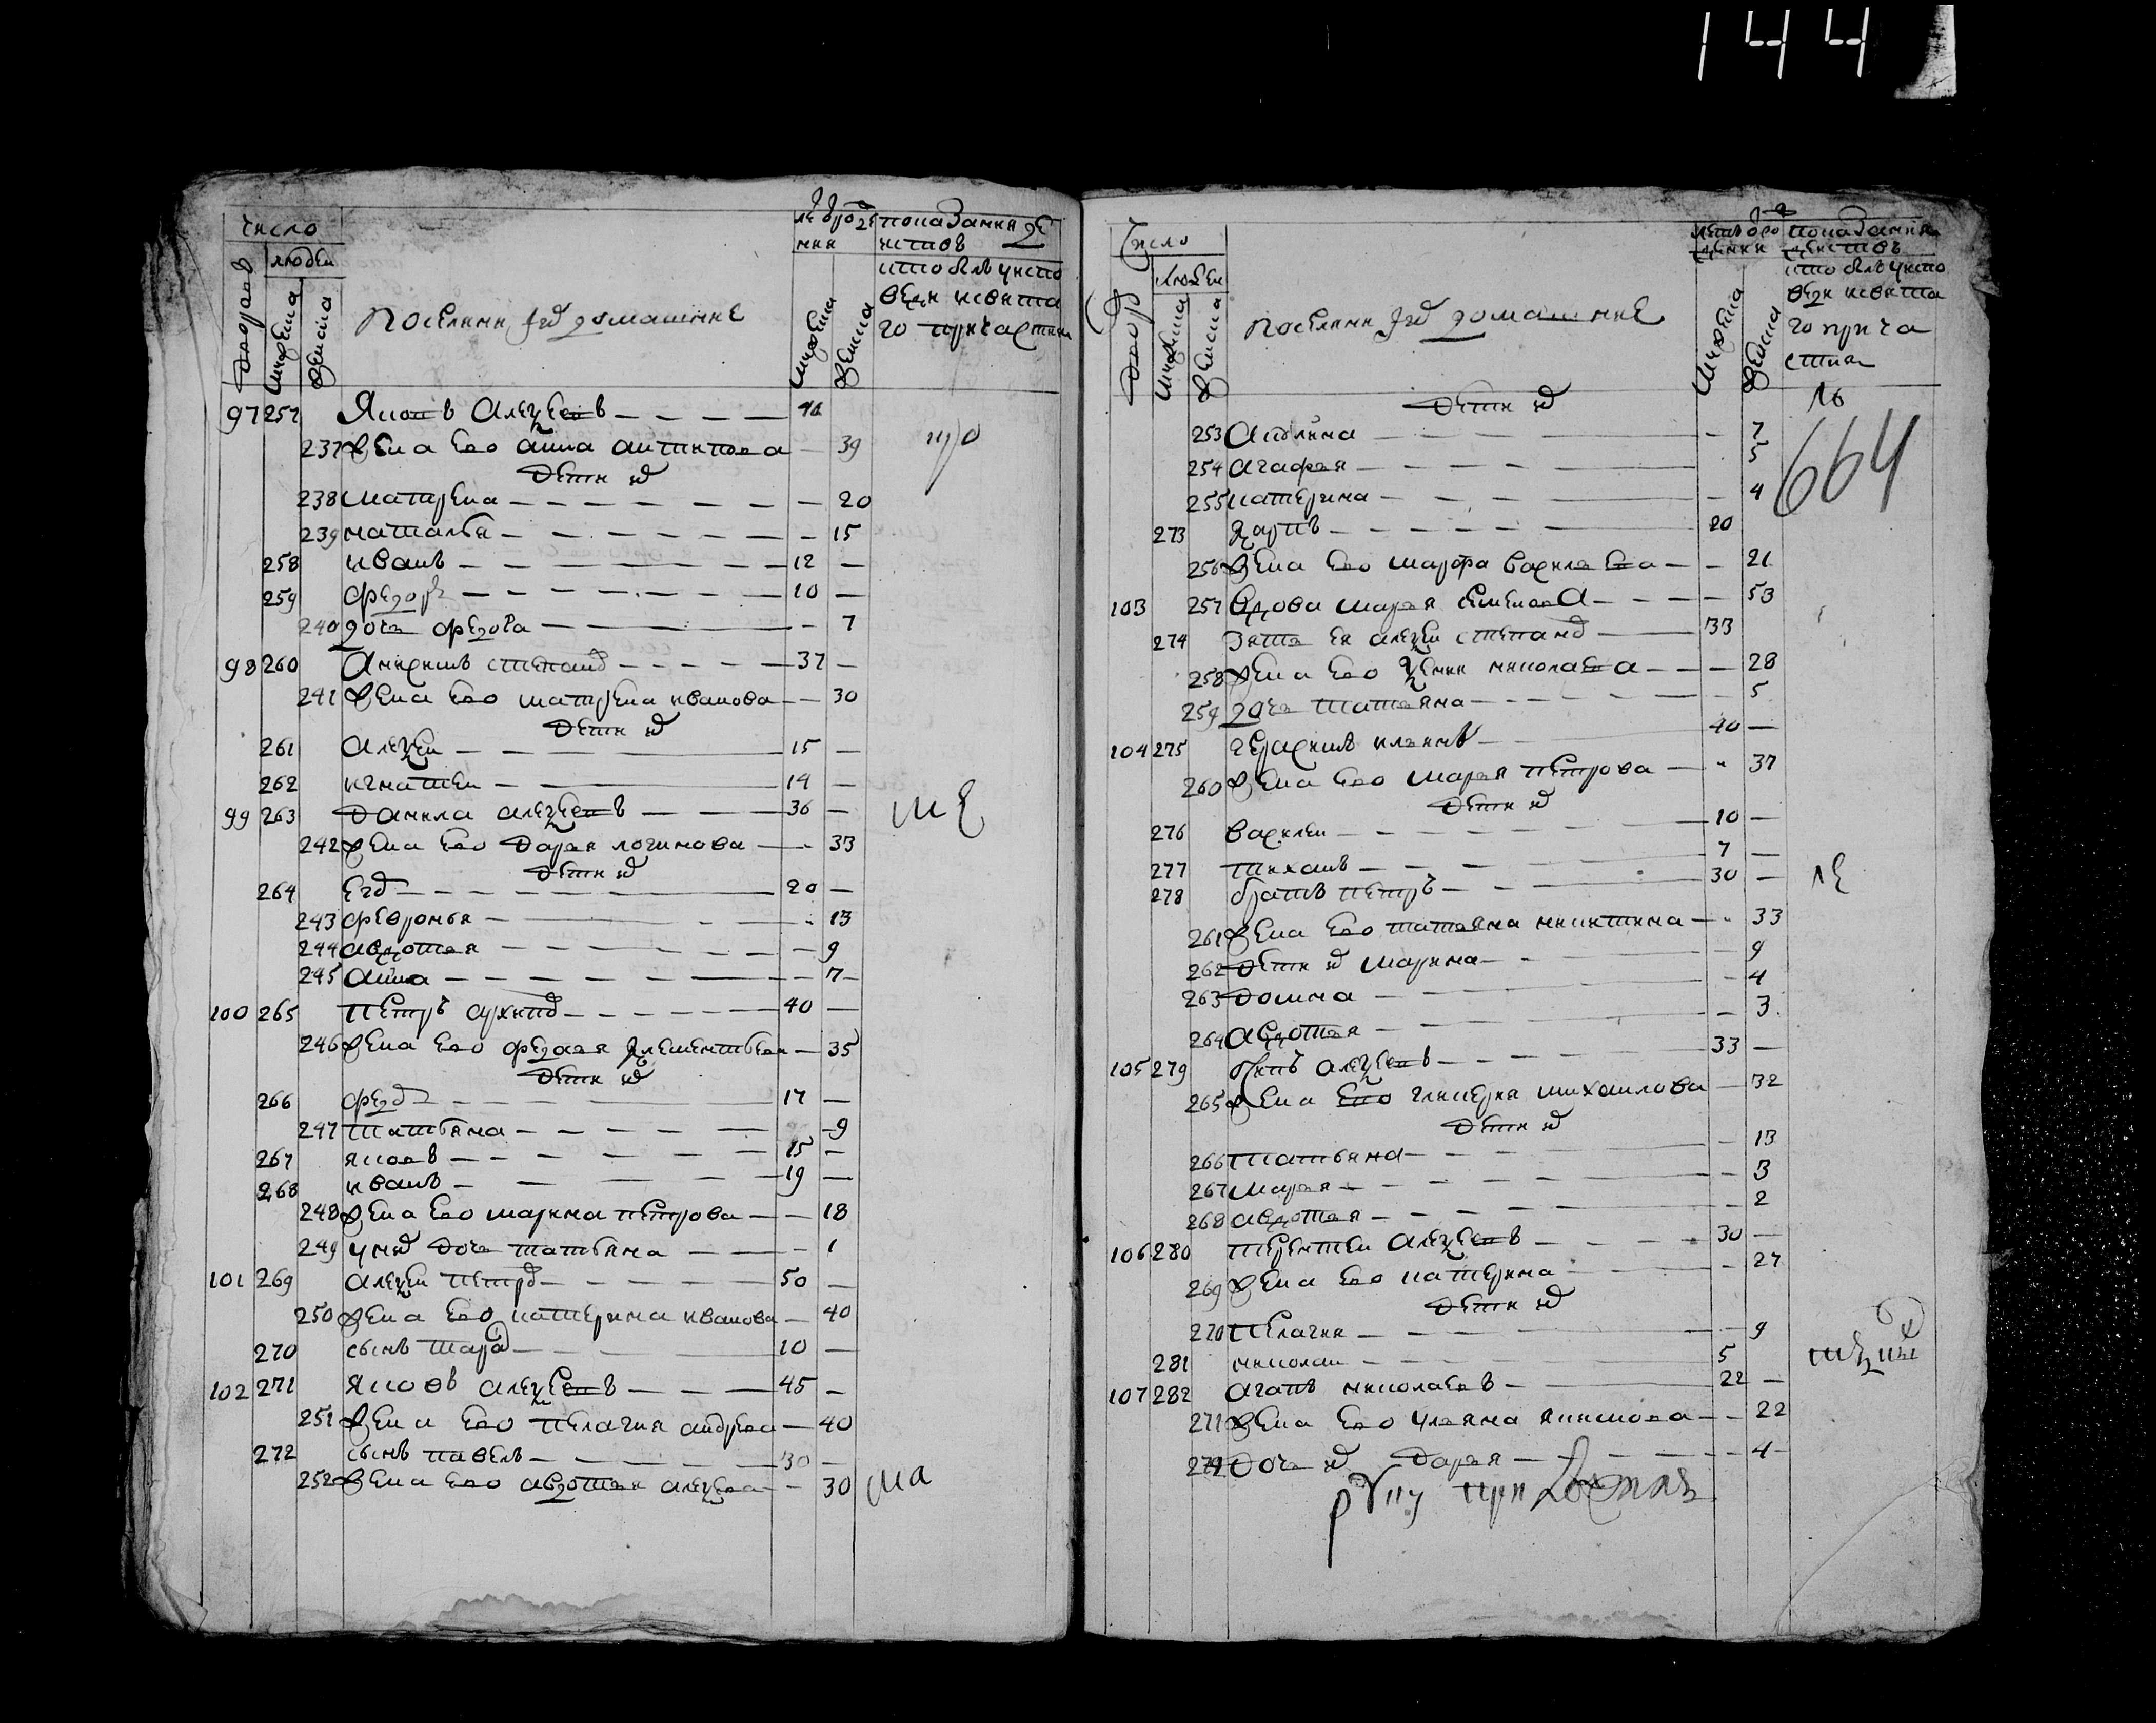 144
число
людеи
дворовъ
мужеска
женска
Поселяне и их домашние
мужеска
женска
показание де
иствъ
кто былъ у испо
веди и святаго
го причастия
97 257 Яковъ Алексеевъ 41
237 жена ево анна антипова 39
дети их
238 матрена 20
239 наталья 15
258 иванъ 12
259 федоръ 10
240 дочь федора 7
98 260 Анисимъ степанов 37
241 жена ево матрена иванова 30
дети их
261 Алексеи 15
262 игнатеи 14
99 263 Данила алексеевъ 36
242 жена ево дарья логинова 33
дети их
264 егор 20
243 февронья 13
244 авдотья 9
245 анна 7
100 265 петръ архипов 40
246 жена ево федосья клементьева 35
дети их
266 федор 17
247 татьяна 9
267 яковъ 15
268 иванъ 19
248 жена ево марина петрова 18
249 у них дочь татьяна 1
101 269 алексеи петров 50
250 жена ево катерина иванова 40
270 сынъ тарас 10
102 271 Яковъ алексеевъ 45
251 жена ево пелагия андреева 40
272 сынъ павелъ 30
252 жена ево авдотья алексеева 30
число
людеи
двор
мужеска
женска
поселяне и их домашние
мужеска
женска
показания
деиствъ
кто былъ у испо
веди и свята
го прича
стия
664
дети их
253 Акулина 7
254 агафья 5
255 катерина 4
273 Карпъ 20
256 жена ево марфа васильева 21
103 257 Вдова марья семенова 53
274 зять ея алексеи степанов 33
258 жена ево ксения николаева 28
259 дочь татьяна 5
104 275 герасимъ 40
260 жена ево марья петрова 37
дети их
276 василеи 10
277 тихонъ 7
278 братъ петръ 30
261 жена ево татьяна никитина 33
262 дети их марина 9
263 домна 4
264 авдотья 3
105 279 алексеевъ 33
265 жена ево гликерия михаилова 32
дети их
266 татьяна 13
267 марья 3
268 авдотья 2
106 280 терентеи алексеевъ 30
269 жена ево катерина 27
дети их
270 пелагия 9
281 николаи 5
107 282 агапъ николаевъ 22
271 жена ево ульяна якимова 22
272 дочь их дарья 4